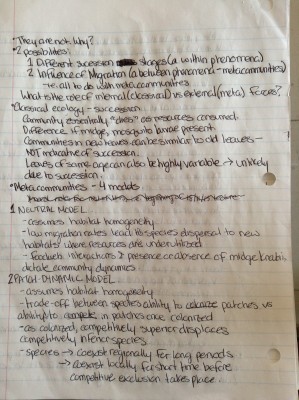 • They are not. Why?
• 2 possibilities:
1 Different succession stages (a within phenomena)
2 Influence of Migration (a between phenomena - metacommunities)
to do with metacommunities
What is the role of internal (classical) vs external (meta) forces?
• Classical ecology - succession
Community essentially "dies" as resources consumed.
Difference if midge, mosquito larvae present
Communities in new leaves can be similar to old leaves -
NOT indicative of succession.
Leaves of same age can also be highly variable → unlikely
due to succession.
• Metacommunities - 4 models
1 NEUTRAL MODEL
- assumes habitat homogeneity
- low migration rates lead to species dispersal to new
habitats where resources are underutilized
- interactions & presence or absence of midge
dictate community dynamics
2 PATCH DYNAMIC MODEL
- assumes habitat homogeneity
- trade-off between species ability to colonize patches vs
ability to compete in patches once colonized
- as colonized, competitively superior displaces
competitively inferior species
- species → coexist regionally for long periods
→ coexist locally for short time before
competitive exclusion takes place